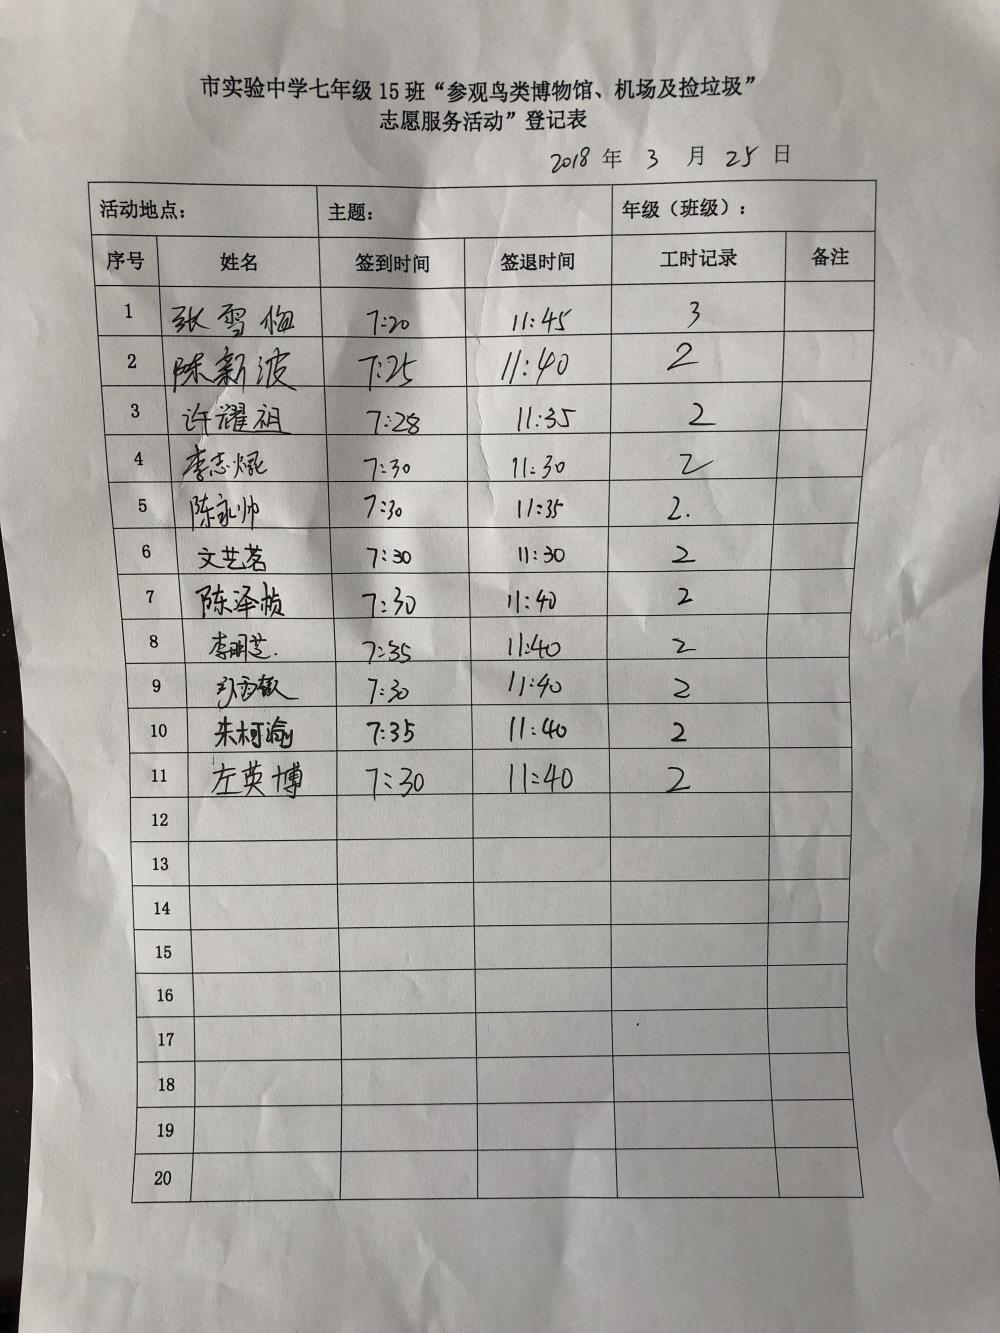 市实验中学七年级 15 班“参观鸟类博物馆、机场及捡垃圾”
志愿服务活动”登记表
2018 年 3 月 25 日
活动地点： 主题： 年级（班级）：
序号 姓名 签到时间 签退时间 工时记录 备注
1 张雪梅 7:20 11:45 3
2 陈新波 7:25 11:40 2
3 许耀祖 7:28 11:35 2
4 李志焜 7:30 11:30 2
5 陈永帅 7:30 11:35 2.
6 文艺茗 7:30 11:30 2
7 陈泽桢 7:30 11:40 2
8 李明芝. 7:35 11:40 2
9 7:30 11:40 2
10 朱柯渝 7:35 11:40 2
11 左英博 7:30 11:40 2
12
13
14
15
16
17
18
19
20